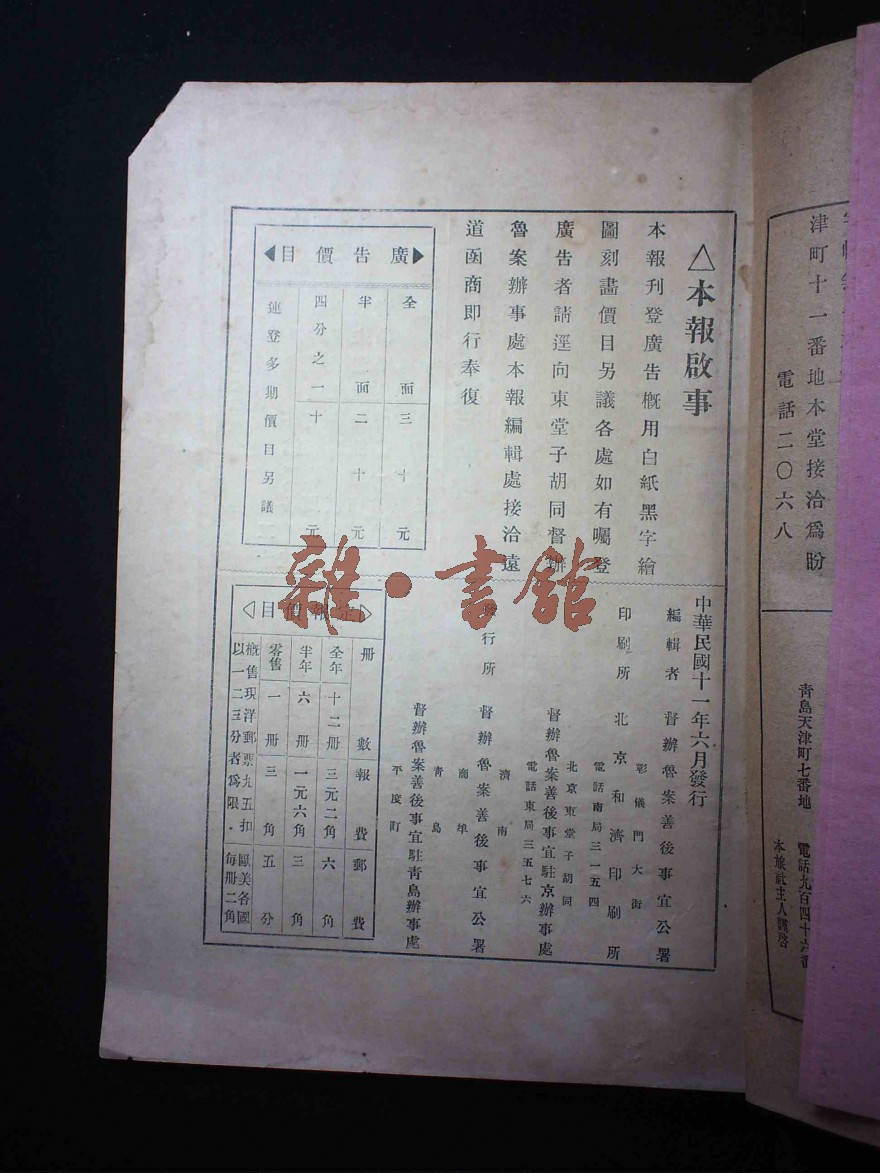 △本報啟事
本報刊登廣告概用白紙黑字繪
圖刻畫價目另議各處如有囑登
廣告者請逕向東堂子胡同督辦
魯案辦事處本報編輯處接洽遠
道函商即行奉復
廣告價目
全面三十元
半面二十元
四分之一十元
連登多期價目另議
中華民國十一年六月發行
編輯者 督辦魯案善後事宜公署
彰儀門大街
印刷所 北京和濟印刷所
電話南局三一五四
北京東堂子胡同
督辦魯案善後事宜駐京辦事處
電話東局三五七六
濟南
發行所 督辦魯案善後事宜公署
商埠
青島
督辦魯案善後事宜駐青島辦事處
平度町
定報價目
冊數 報費 郵費
全年 十二冊 三元二角 六角
半年 六冊 一元六角 三角
零售 一冊 三角 五分
概售現洋郵票九五扣 歐美各國
以一二三分者為限 每冊二角
津町十一番地本堂接洽為盼
電話二〇六八
青島天津町七番地
電話九百四十六番
本旅社主人謹啓
雜·書館